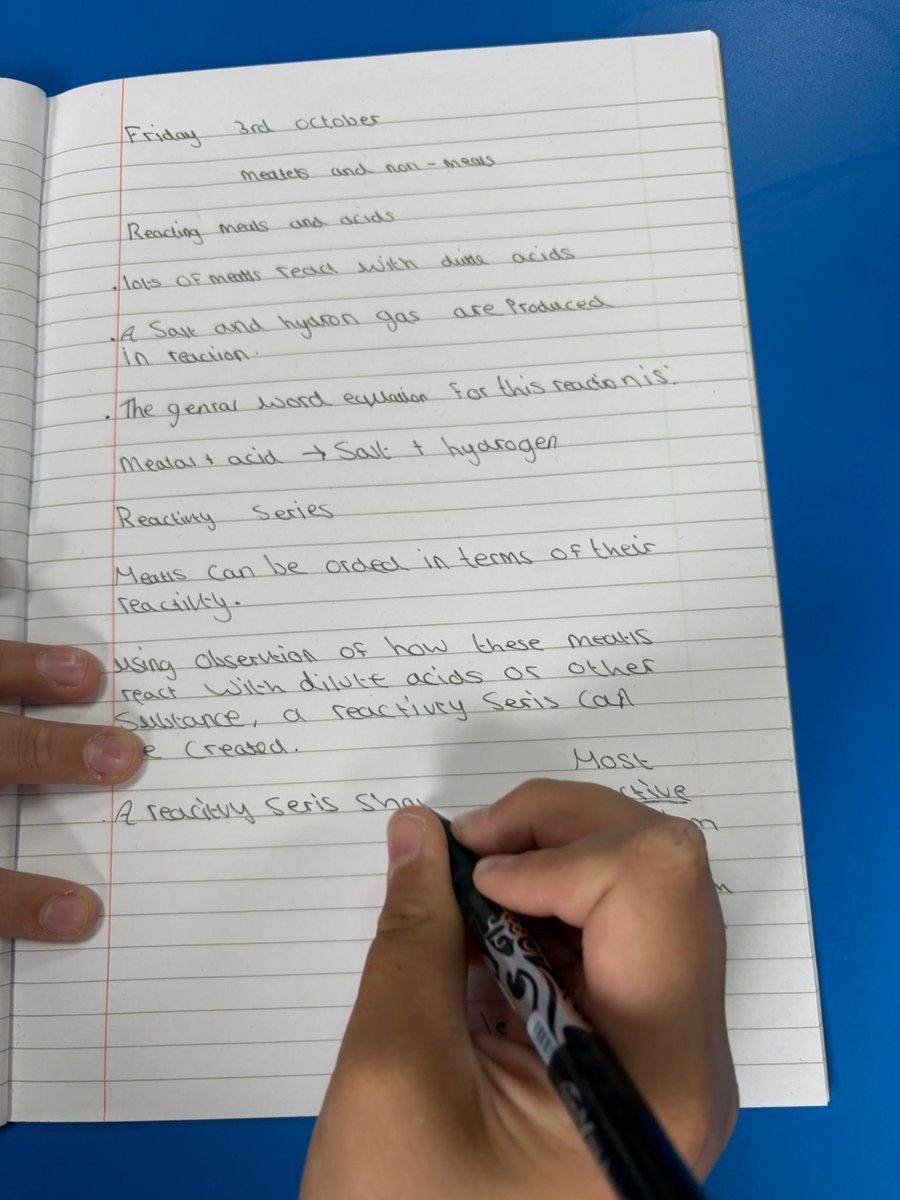 Friday 3rd October
meatels and non-meals
Reacting meals and acids
. lots of meatls react with dilute acids
. A Salt and hydron gas are Produced
in reaction.
. The genral word equation for this reaction is:
Meatal + acid → Salt + hydrogen
Reactivity Series
Meatls can be orded in terms of their
reactivity.
using observtion of how these meatls
react with dilute acids or other
Substance, a reactivity Seris can
e created.
Most
ctive
. A reacitvy Seris Sha
m
m
le